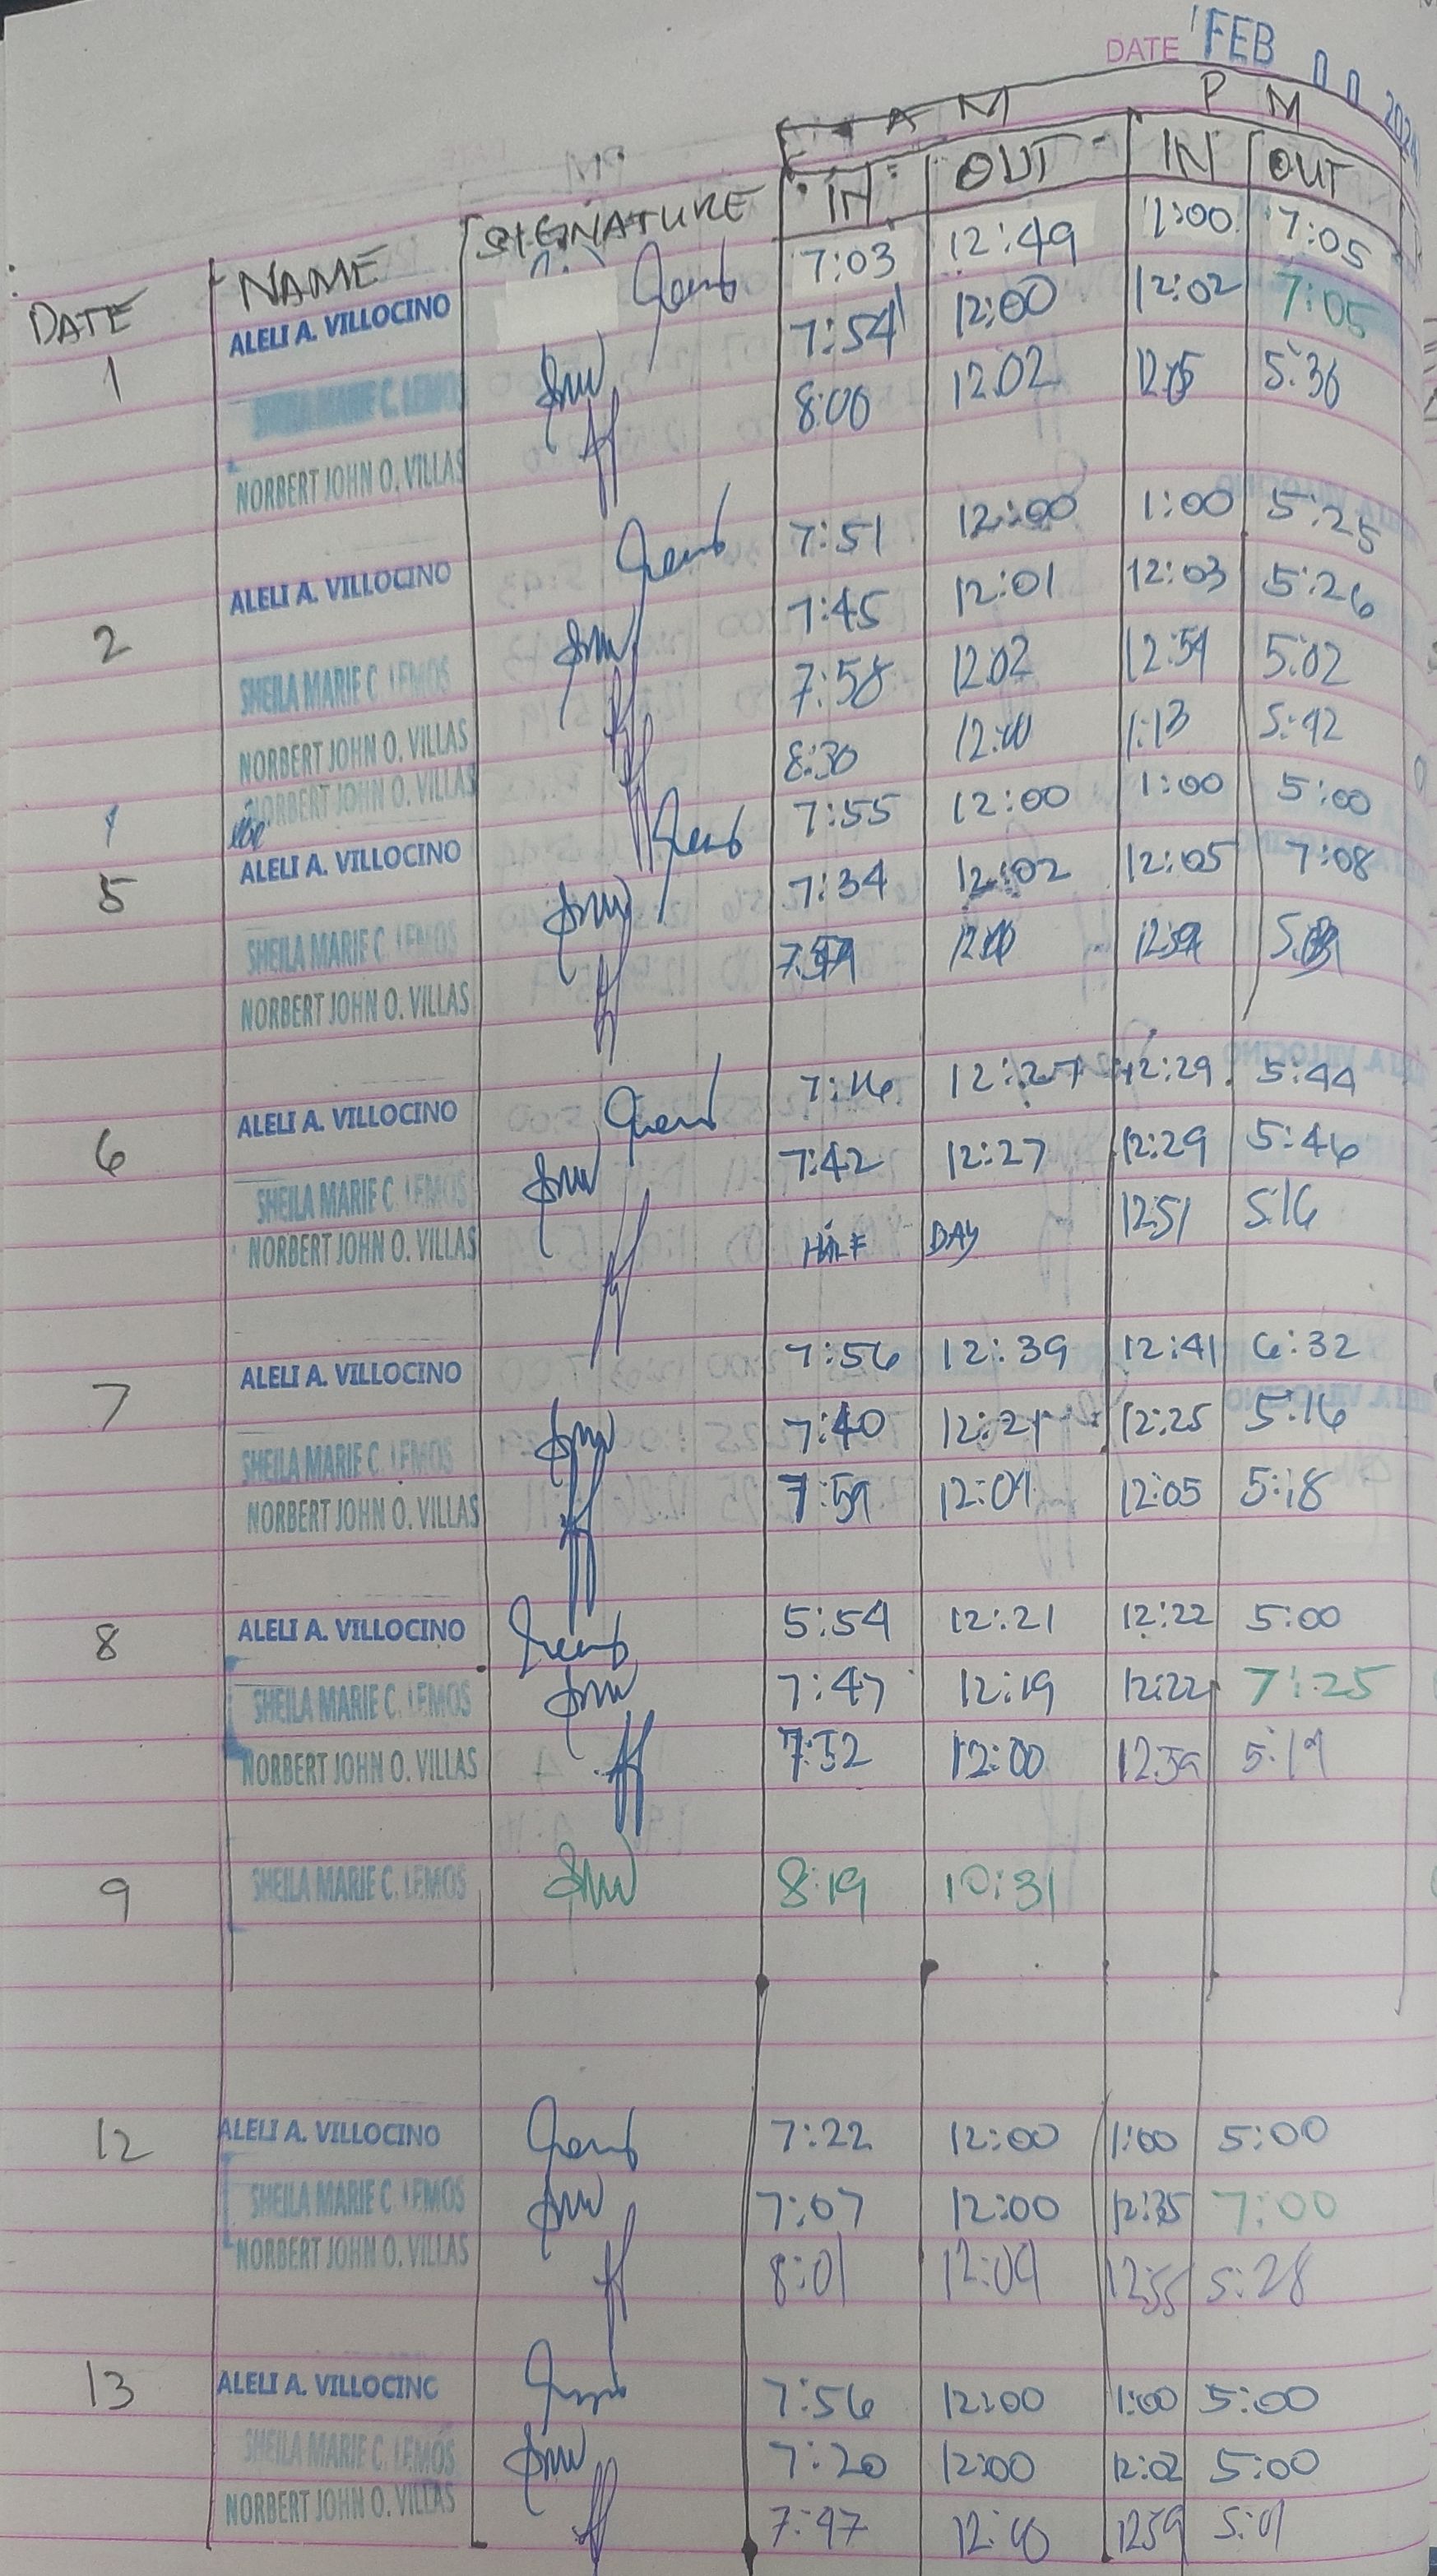 DATE FEB 2024
AM PM
DATE NAME SIGNATURE IN OUT IN OUT
1 ALELI A. VILLOCINO 7:03 12:49 1:00 7:05
SHEILA MARIE C. LEMOS 7:54 12:00 12:02 7:05
NORBERT JOHN O. VILLAS 8:00 12:02 5:36
2 ALELI A. VILLOCINO 7:51 12:00 1:00 5:25
SHEILA MARIE C. LEMOS 7:45 12:01 12:03 5:26
NORBERT JOHN O. VILLAS 7:58 12:02 12:59 5:02
NORBERT JOHN O. VILLAS 8:30 12:00 1:13 5:42
5 ALELI A. VILLOCINO 7:55 12:00 1:00 5:00
SHEILA MARIE C. LEMOS 7:34 12:02 12:05 7:08
NORBERT JOHN O. VILLAS
6 ALELI A. VILLOCINO 7:16 12:27 12:29 5:44
SHEILA MARIE C. LEMOS 7:42 12:27 12:29 5:46
NORBERT JOHN O. VILLAS HALF DAY 12:51 5:16
7 ALELI A. VILLOCINO 7:56 12:39 12:41 6:32
SHEILA MARIE C. LEMOS 7:40 12:21 12:25 5:16
NORBERT JOHN O. VILLAS 7:59 12:01 12:05 5:18
8 ALELI A. VILLOCINO 5:54 12:21 12:22 5:00
SHEILA MARIE C. LEMOS 7:47 12:19 12:22 7:25
NORBERT JOHN O. VILLAS 7:52 12:00 12:59 5:19
9 SHEILA MARIE C. LEMOS 8:19 10:31
12 ALELI A. VILLOCINO 7:22 12:00 1:00 5:00
SHEILA MARIE C. LEMOS 7:07 12:00 12:35 7:00
NORBERT JOHN O. VILLAS 8:01 12:09 12:55 5:28
13 ALELI A. VILLOCINO 7:56 12:00 1:00 5:00
SHEILA MARIE C. LEMOS 7:20 12:00 12:02 5:00
NORBERT JOHN O. VILLAS 7:47 12:59 5:01